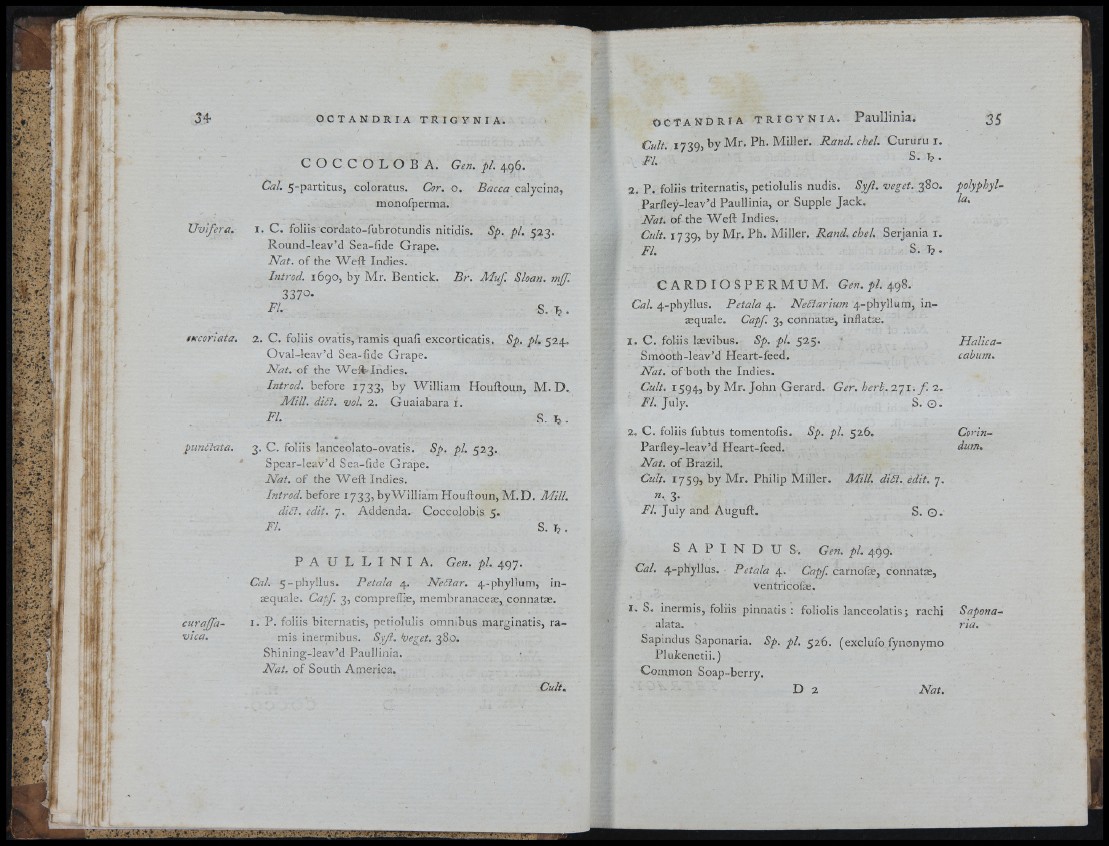 34 OCTANDRIA TRIGYNIA.
COCCOLOBA. Gen. pl. 496.
Cal. 5-partitus, coloratus. Cor. 0. Bacca calycina,
monoſperma.
Uvifera. 1. C. foliis cordato-ſubrotundis nitidis. Sp. pl. 523.
Round-leav'd Sea-ſide Grape.
Nat. of the Weſt Indies.
Introd. 1690, by Mr. Bentick. Br. Muſ. Sloan. mſſ.
3370.
Fl. S. ♄.
excoriata. 2. C. foliis ovatis, ramis quaſi excorticatis. Sp. pl. 524.
Oval-leav'd Sea-ſide Grape.
Nat. of the Weſt Indies.
Introd. before 1733, by William Houſtoun, M. D.
Mill. dict. vol. 2. Guaiabara 1.
Fl. S. ♄.
punctata. 3. C. foliis lanceolato-ovatis. Sp. pl. 523.
Spear-leav'd Sea-ſide Grape.
Nat. of the Weſt Indies.
Introd. before 1733, by William Houſtoun, M.D. Mill.
dict. edit. 7. Addenda. Coccolobis 5.
Fl. S. ♄.
PAULLINIA. Gen. pl. 497.
Cal. 5-phyllus. Petala 4. Nectar. 4-phyllum, in-
æquale. Capſ. 3, compreſſæ, membranaceæ, connatæ.
curaſſa-
vica. 1. P. foliis biternatis, petiolulis omnibus marginatis, ra-
mis inermibus. Syſt. veget. 380.
Shining-leav'd Paullinia.
Nat. of South America.
Cult.
OCTANDRIA TRIGYNIA. Paullinia. 35
Cult. 1739, by Mr. Ph. Miller. Rand. chel. Cururu 1.
Fl. S. ♄.
2. P. foliis triternatis, petiolulis nudis. Syſt. veget. 380. polyphyl-
la.
Parſley-leav'd Paullinia, or Supple Jack.
Nat. of the Weſt Indies.
Cult. 1739, by Mr. Ph. Miller. Rand. chel. Serjania 1.
Fl. S. ♄.
CARDIOSPERMUM. Gen. pl. 498.
Cal. 4-phyllus. Petala 4. Nectarium 4-phyllum, in-
æquale. Capſ. 3, connatæ, inflatæ.
1. C. foliis lævibus. Sp. pl. 525. Halica-
cabum.
Smooth-leav'd Heart-ſeed.
Nat. of both the Indies.
Cult. 1594, by Mr. John Gerard. Ger. herb. 271. f. 2.
Fl. July. S. ☉.
2. C. foliis ſubtus tomentoſis. Sp. pl. 526. Corin-
dum.
Parſley-leav'd Heart-ſeed.
Nat. of Brazil.
Cult. 1759, by Mr. Philip Miller. Mill. dict. edit. 7.
n. 3.
Fl. July and Auguſt. S. ☉.
SAPINDUS. Gen. pl. 499.
Cal. 4-phyllus. Petala 4. Capſ. carnoſæ, connatæ,
ventricoſæ.
1. S. inermis, foliis pinnatis: foliolis lanceolatis; rachi Sapona-
ria.
alata.
Sapindus Saponaria. Sp. pl. 526. (excluſo ſynonymo
Plukenetii.)
Common Soap-berry.
D 2 Nat.